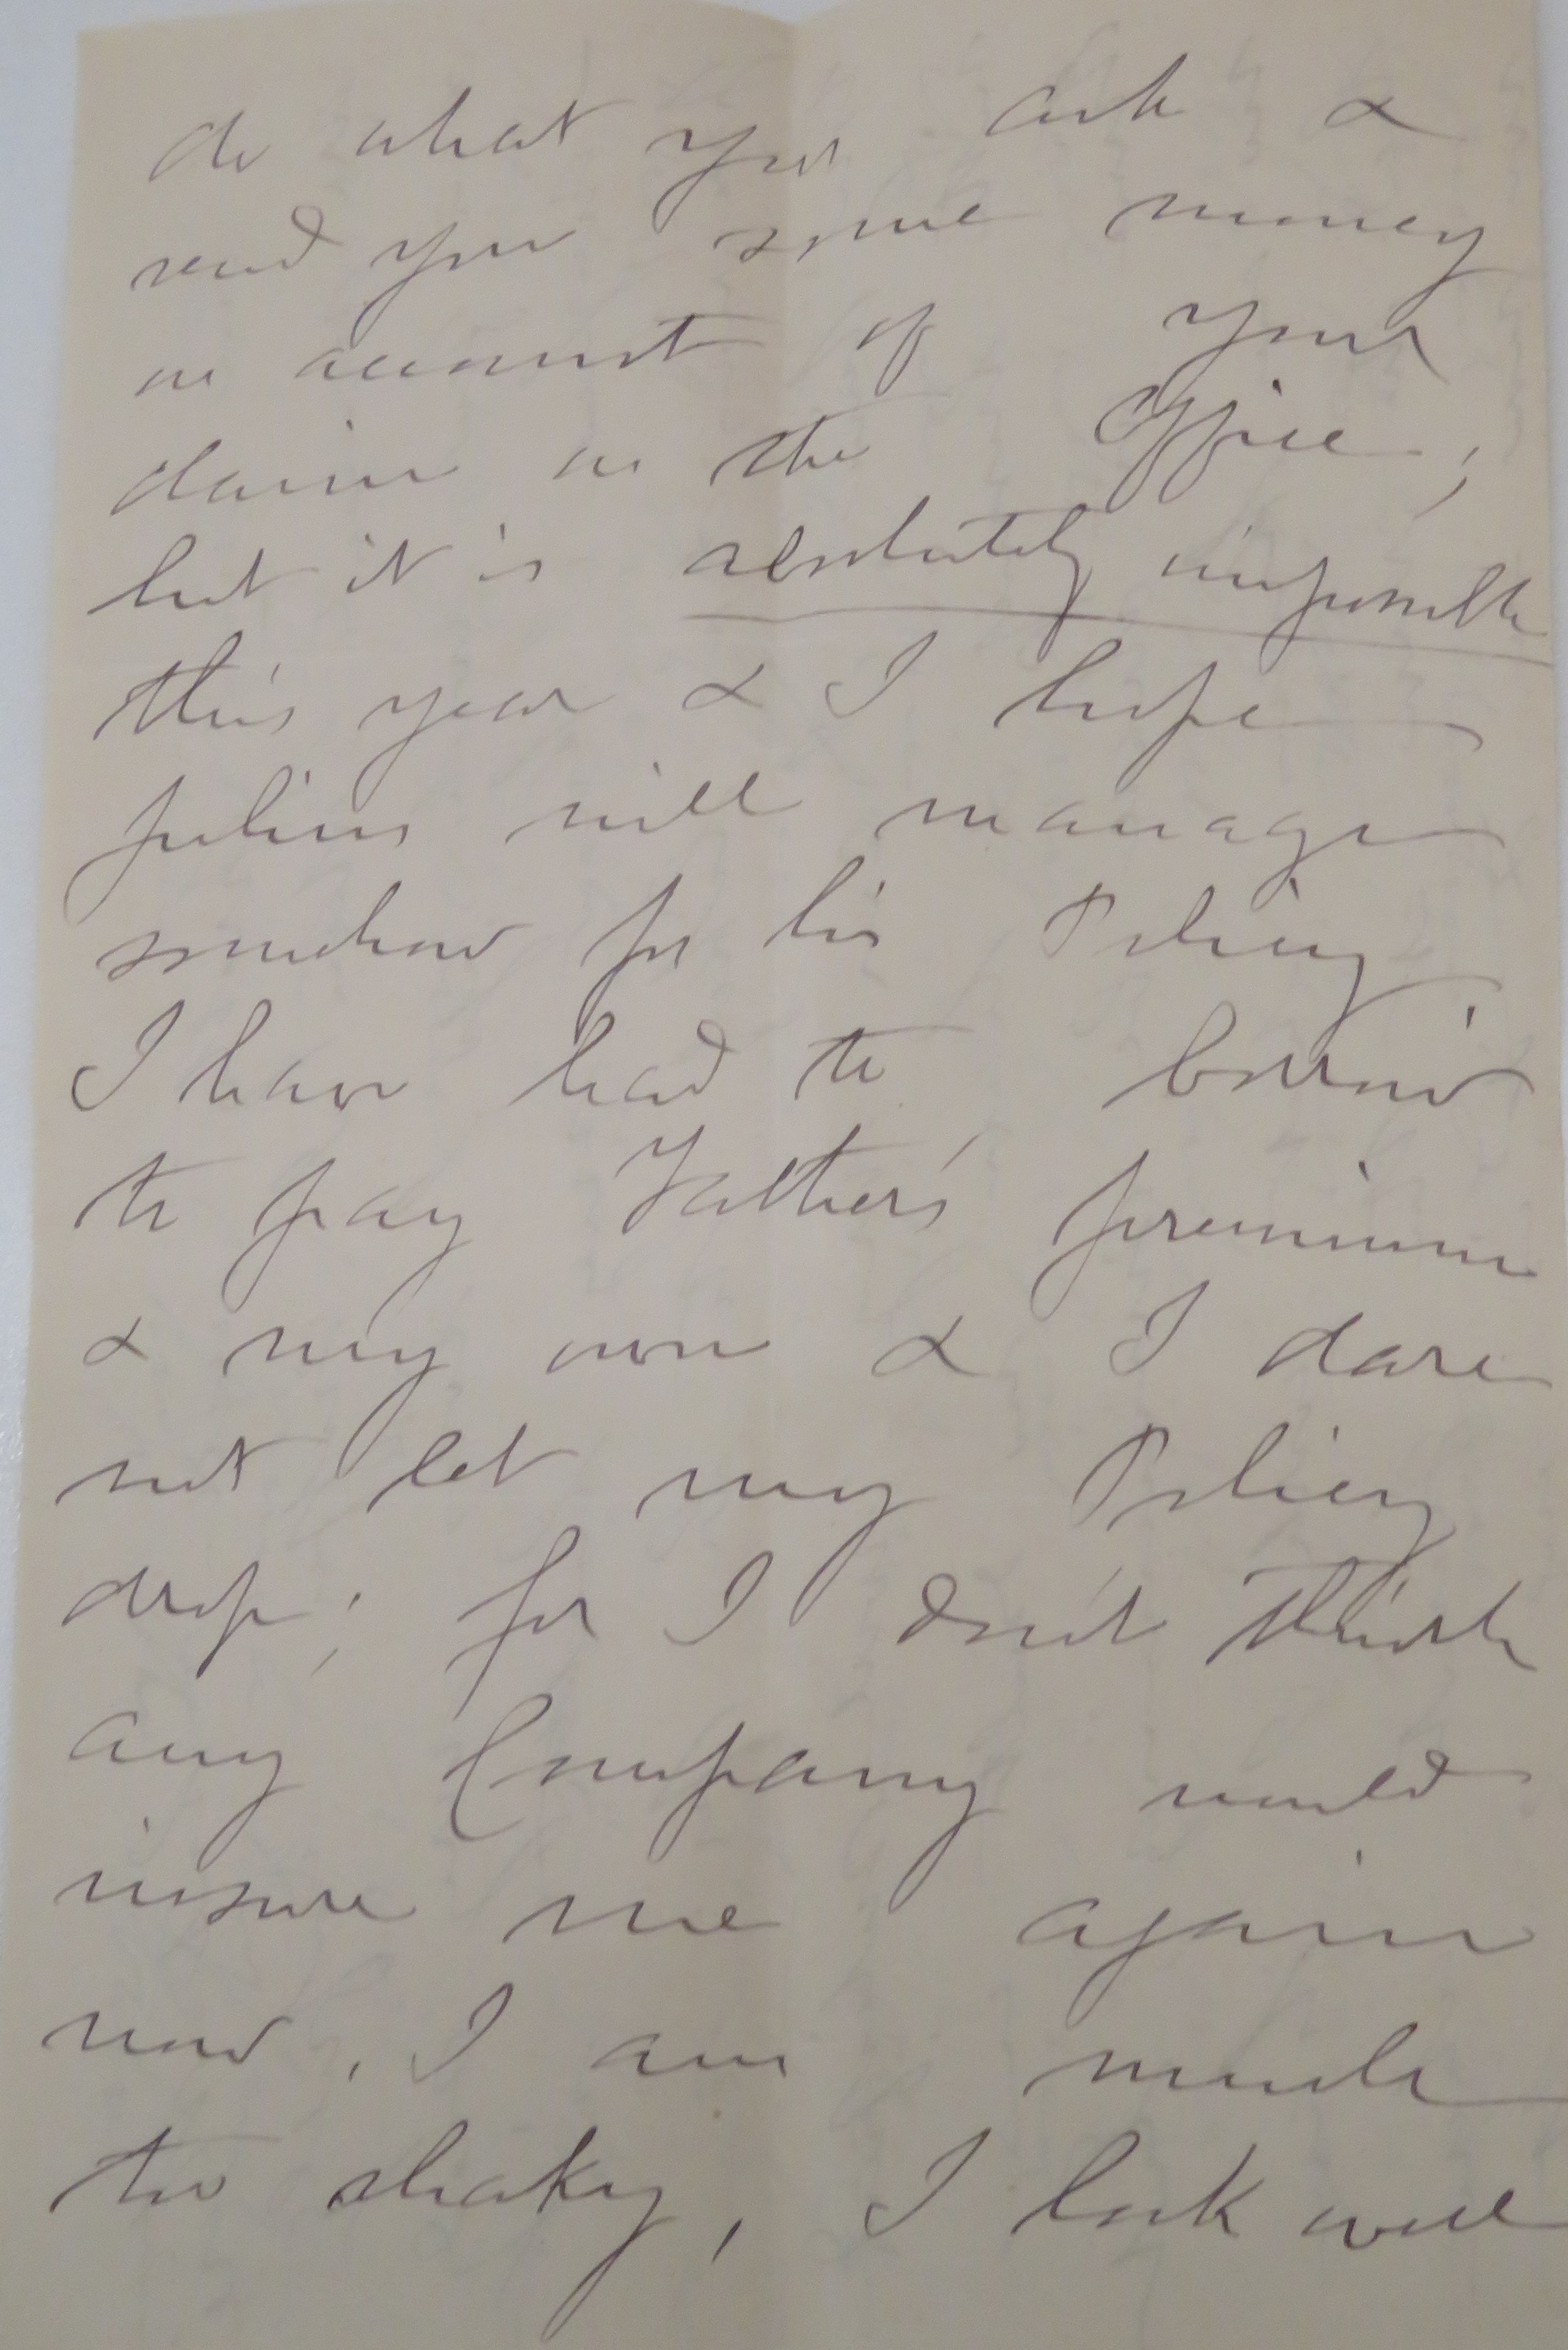 do what you ask &
send you some money
on account of your
claim on the Office ;
but it is absolutely impossible
this year & I hope
Julius will manage
somehow for his Policy
I have had to borrow
to pay Father's premium
& my own & I dare
not let my Policy
drop ; for I don't think
any Company would
insure me again
now , I am much
too shaky , I look well